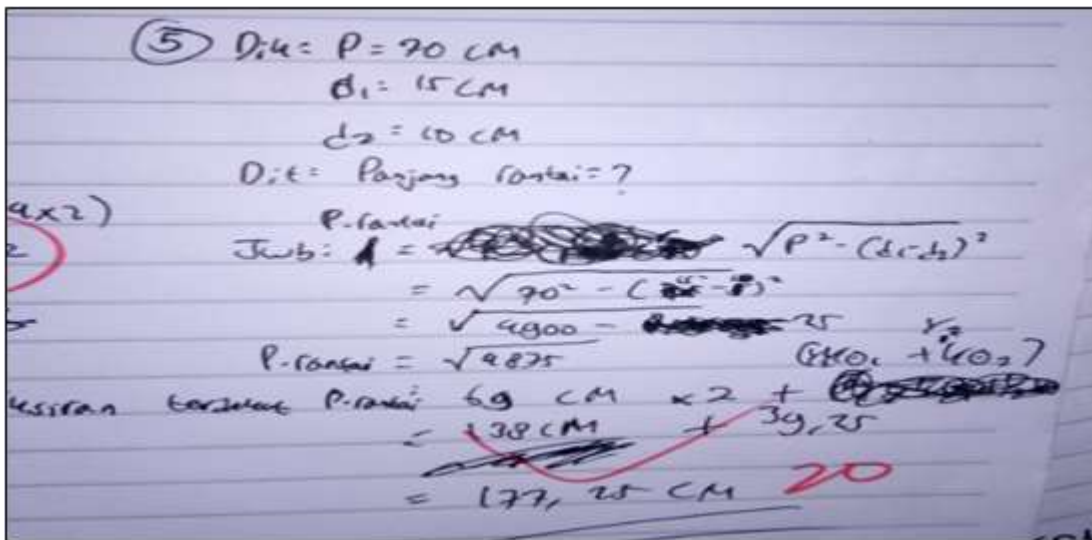 5 Dik = P = 70 cm
d1 = 15 cm
d2 = 10 cm
Dit = Panjang rantai = ?
4x2)
2
P. rantai
Jwb: = √P² - (d1-d2)²
= √70² - ( )²
= √4900 - 25
P. rantai = √4875
terdekat P. rantai 69 cm x 2 +
= 138 cm + 39,25
= 177,25 cm 20